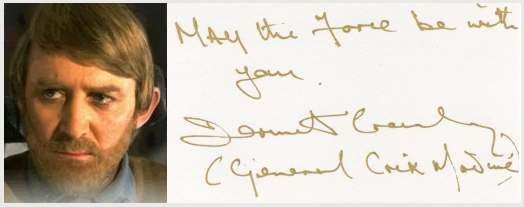 MAY the Force be with
you.
Dermot Crowley
(General Crix Madine)